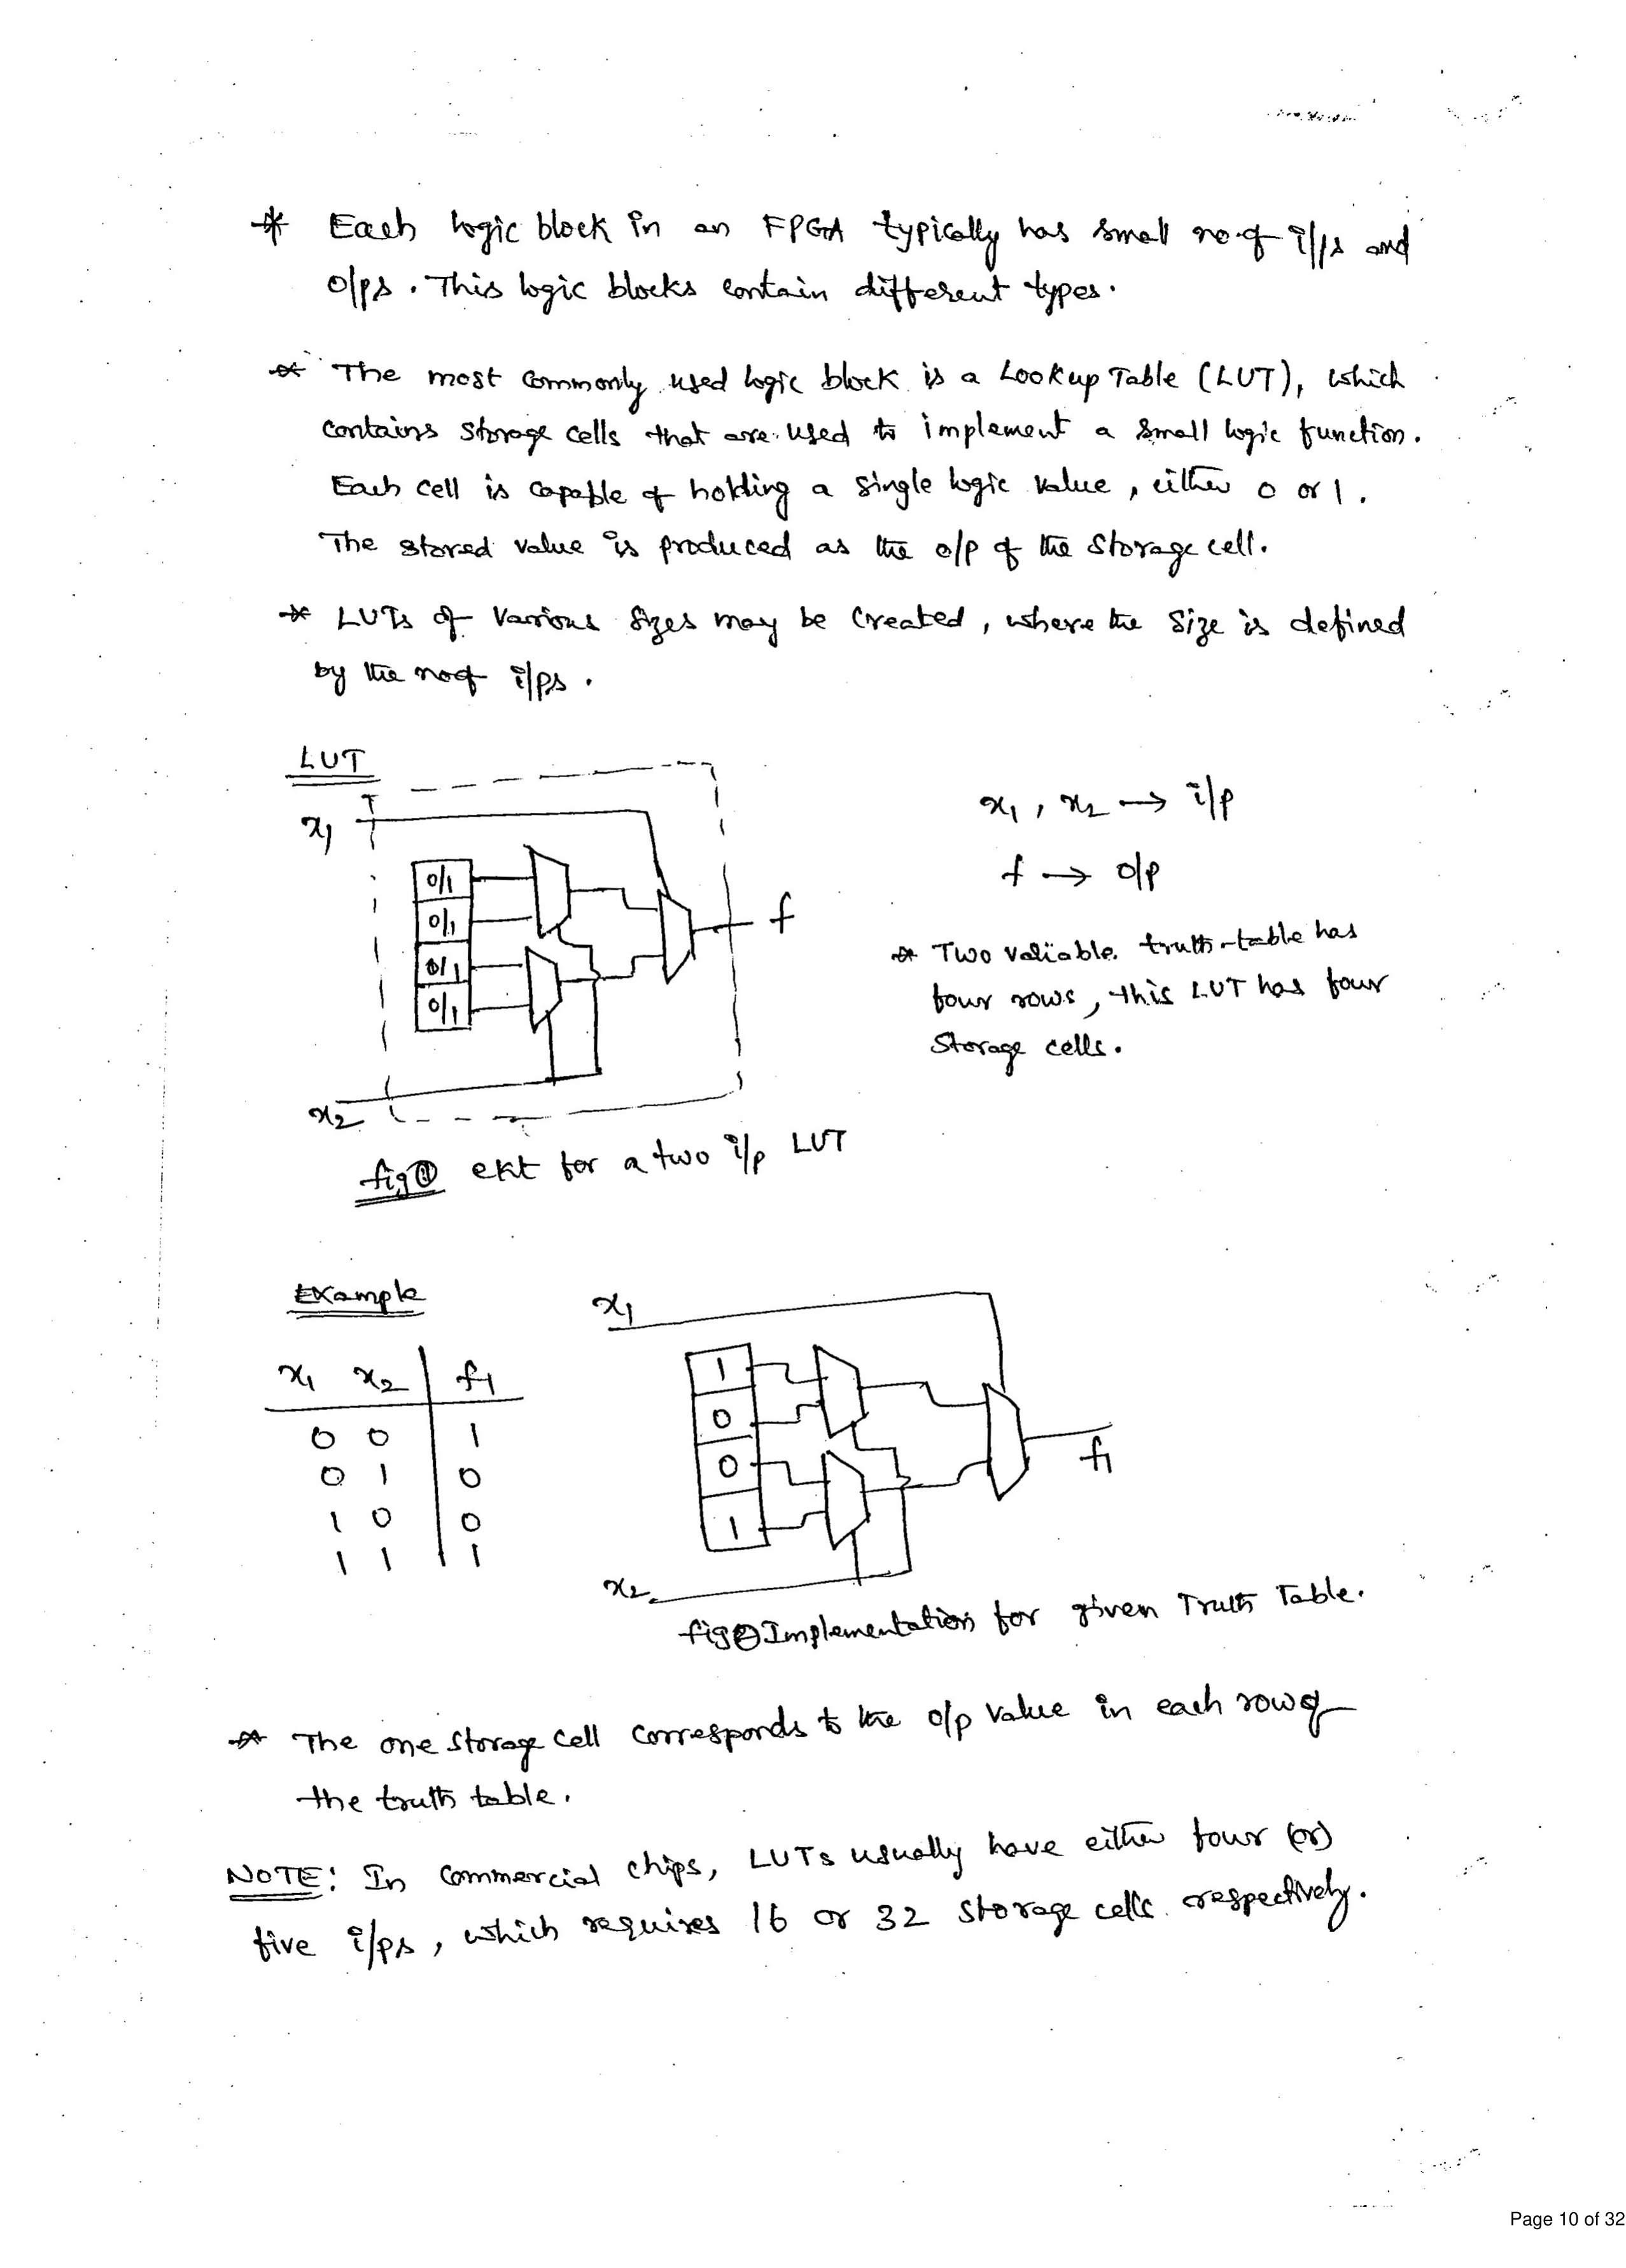 * Each logic block in an FPGA typically has small no.of i/ps and
o/ps. This logic blocks contain different types.
* The most commonly used logic block is a Lookup Table (LUT), which
contains storage cells that are used to implement a small logic function.
Each cell is capable of holding a single logic value, either 0 or 1.
The stored value is produced as the o/p of the storage cell.
* LUTs of various sizes may be created, where the size is defined
by the noof i/ps.
LUT
x1
0/1
0/1
0/1
0/1
f
x2
x1, x2 → i/p
f → o/p
* Two variable truth-table has
four rows, this LUT has four
storage cells.
fig① ckt for a two i/p LUT
Example
x1 x2 f1
0 0 1
0 1 0
1 0 0
1 1 1
x1
1
0
0
1
f1
x2
fig② Implementation for given Truth Table.
* The one storage cell corresponds to the o/p value in each row of
the truth table.
NOTE: In commercial chips, LUTs usually have either four (or)
five i/ps, which requires 16 or 32 storage cells respectively.
Page 10 of 32